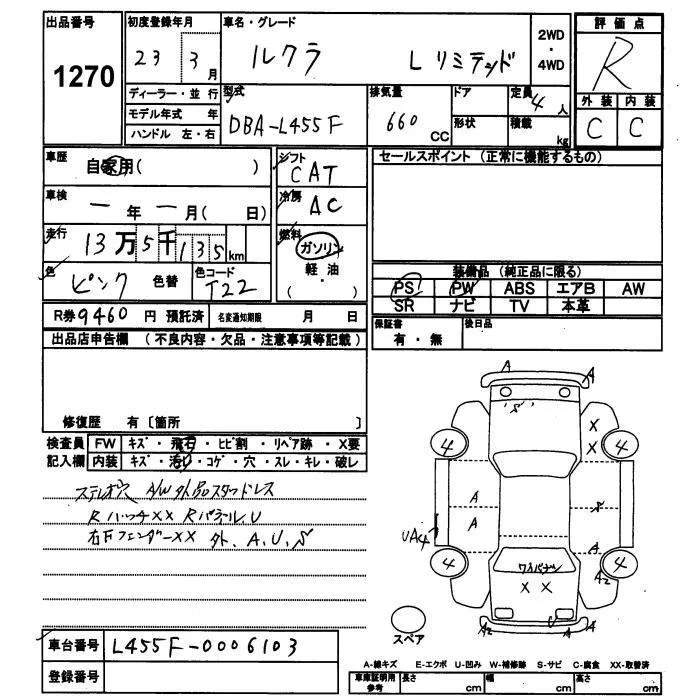 出品番号 1270
初度登録年月 23 3月
車名・グレード ルクラ L リミテッド
2WD・4WD
評価点 R
外装 内装
C C
ディーラー・並行
モデル年式 年
ハンドル 左・右
型式 DBA-L455F
排気量 660 CC
ドア
形状
定員 4人
積載 kg
車歴 自家用( )
車検 ー年ー月( 日)
走行 13万5千135km
色 ピンク 色替
色コード T22
シフト CAT
冷房 AC
燃料 ガソリン
軽油
( )
セールスポイント (正常に機能するもの)
装備品 (純正品に限る)
PS PW ABS エアB AW
SR ナビ TV 本革
保証書 有・無
後日品
R券9460円 預託済 名変通知期限 月 日
出品店申告欄 (不良内容・欠品・注意事項等記載)
修復歴 有〔箇所 〕
検査員 FW キズ・飛石・ヒビ割・リペア跡・X要
記入欄 内装 キズ・汚れ・コゲ・穴・スレ・キレ・破レ
ステレオ穴 A/W外品スタッドレス
RハッチXX Rパネル.U
右Fフェンダーxx 外、A、U、S
A A
S X
X
4 4
A S
A
UA4 A
4 4
ワイパナシ A2
X X
A2 U A A
スペア
車台番号 L455F-0006103
登録番号
A-線キズ E-エクボ U-凹み W-補修跡 S-サビ C-腐食 XX-取替済
車庫証明用参考 長さ cm 幅 cm 高さ cm